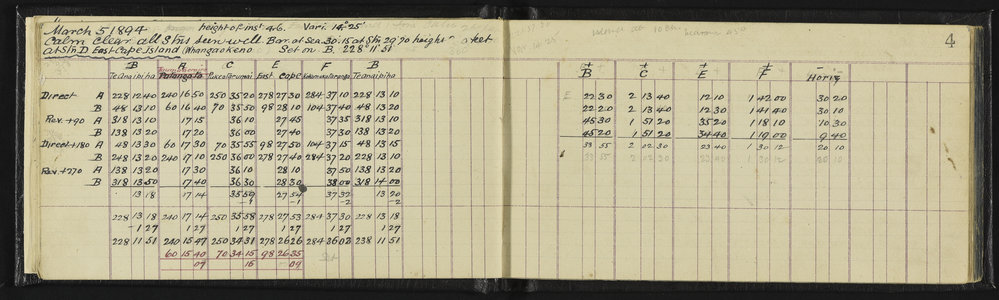 March 5 1894 height of inst 4.6. Vari. 14° 25'
Calm clear all Stns seen well. Bar at Sea 30.15 at Stn 29.70 height feet
at Stn D East Cape Island (Whangaokeno Set on B. 228° 11' 51
4
B A C E F B
Te Anaibiha Patangata East Cope Te Anaibiha
Direct A 228 12 40 240 16 50 250 35 20 278 27 30 284 37 10 228 13 10
B 48 13 10 60 16 40 70 35 50 98 28 10 104 37 40 48 13 20
Rev. +90 A 318 13 10 17 15 36 10 27 45 37 35 318 13 10
B 138 13 20 17 20 36 00 27 40 37 30 138 13 20
Direct +180 A 48 13 30 60 17 30 70 35 55 98 27 50 104 37 15 48 13 15
B 248 13 20 240 17 10 250 36 00 278 27 40 284 37 20 228 13 10
Rev. +270 A 138 13 20 17 30 36 10 28 10 37 50 138 13 20
B 318 13 50 17 40 36 30 28 30 38 00 318 14 00
13 18 17 14 35 59 27 54 37 32 13 20
-1 -1 -2 -2
228 13 18 240 17 14 250 35 58 278 27 53 284 37 30 228 13 18
-1 27 1 27 1 27 1 27 1 27 1 27
228 11 51 240 15 47 250 34 31 278 26 26 284 36 03 228 11 51
60 15 40 70 34 15 98 26 35
09 16 09
B C E F Horiz
22 30 2 13 40 12 10 1 42 00 30 20
22 20 2 13 40 12 30 1 41 40 30 10
45 30 1 51 20 35 20 1 18 10 10 30
45 20 1 51 20 34 40 1 19 00 9 40
33 55 2 02 30 23 40 1 30 12 20 10
33 55 2 02 30 23 40 1 30 12 20 10